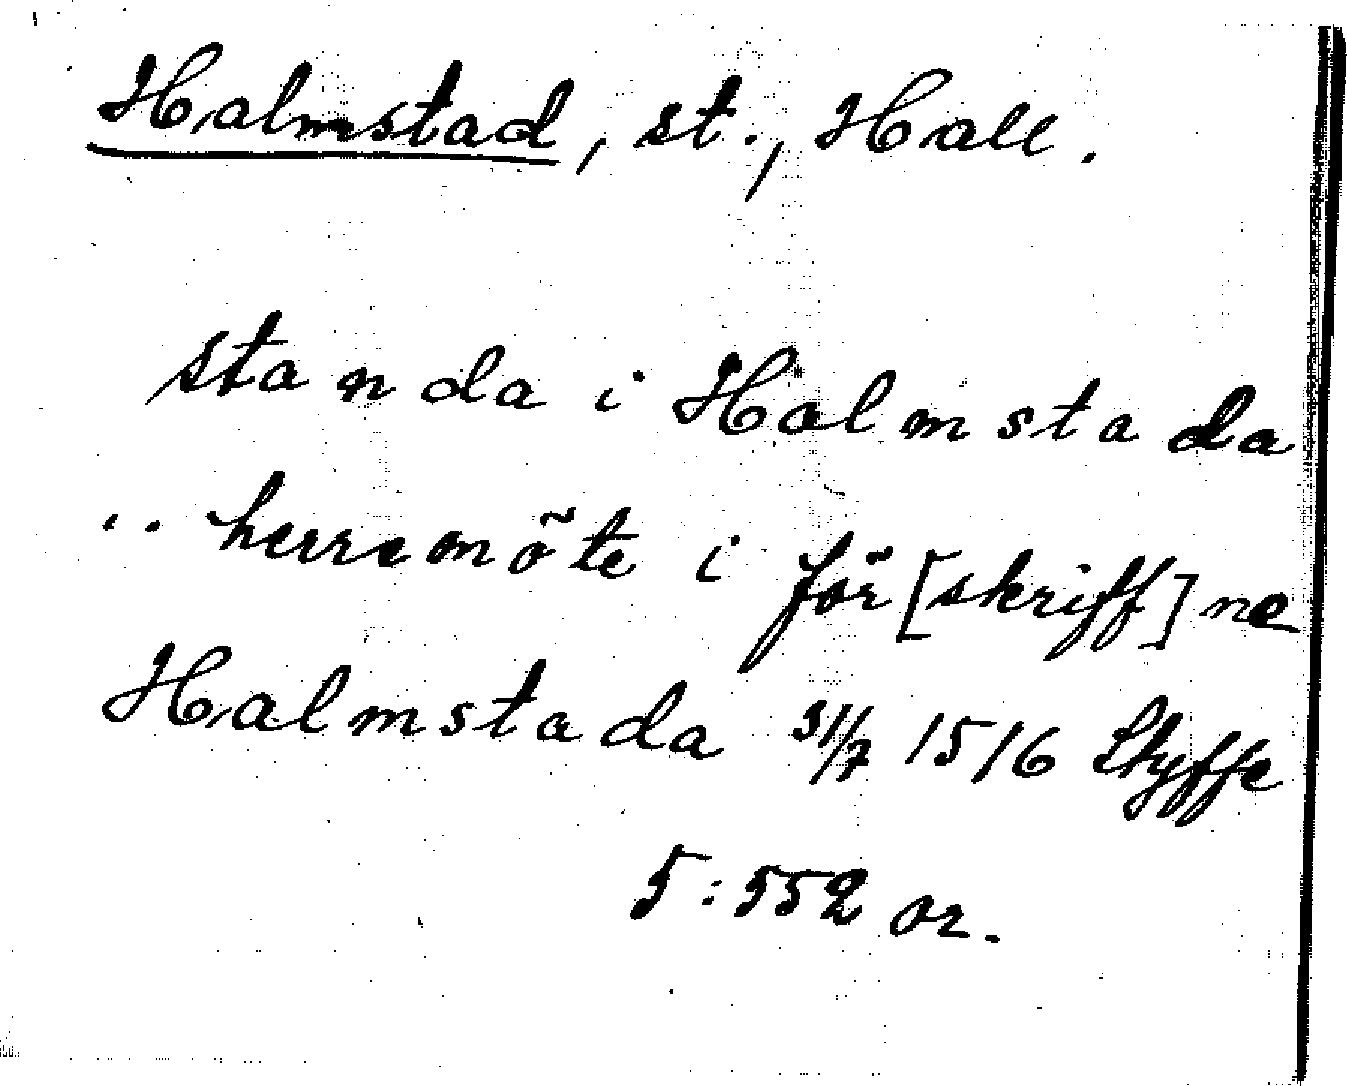 Halmstad, st., Hall.
standa i Halmstada
.. herremöte i för[skriff]ne
Halmstada 31/7 1516 Styffe
5:552 or.